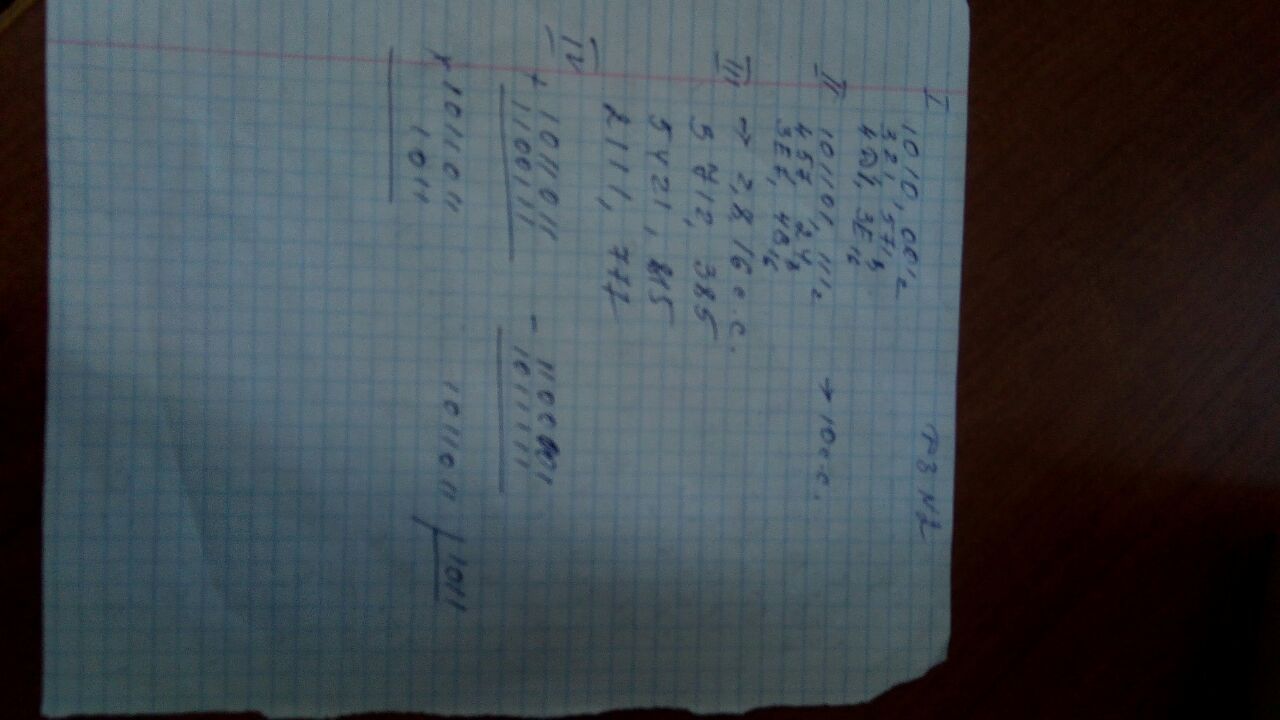 РЗ №2
I 1010,001₂
321,571₈
4A1,3E₁₆
II 101101,111₂ → 10 с.с.
457,24₈
3EF,4B₁₆
III → 2,8,16 с.с.
5412,385
5421,815
2111,777
IV + 1011011 - 1100001
1100111 1011111
x 1011011 1011011 | 1011
1011